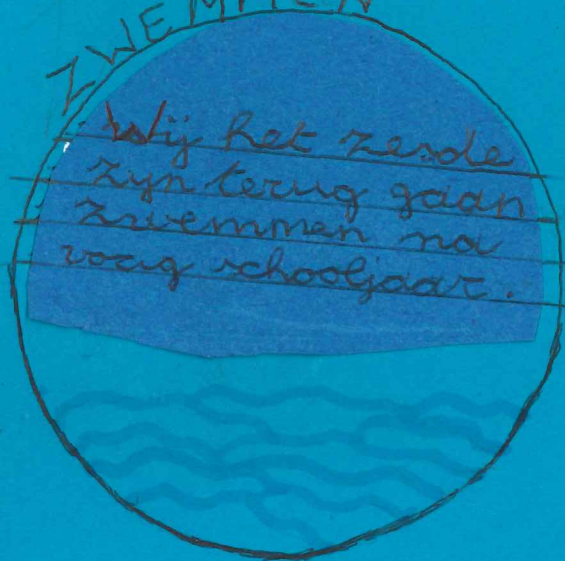 ZWEMMEN
Wij het zesde
zijn terug gaan
zwemmen na
vorig schooljaar.